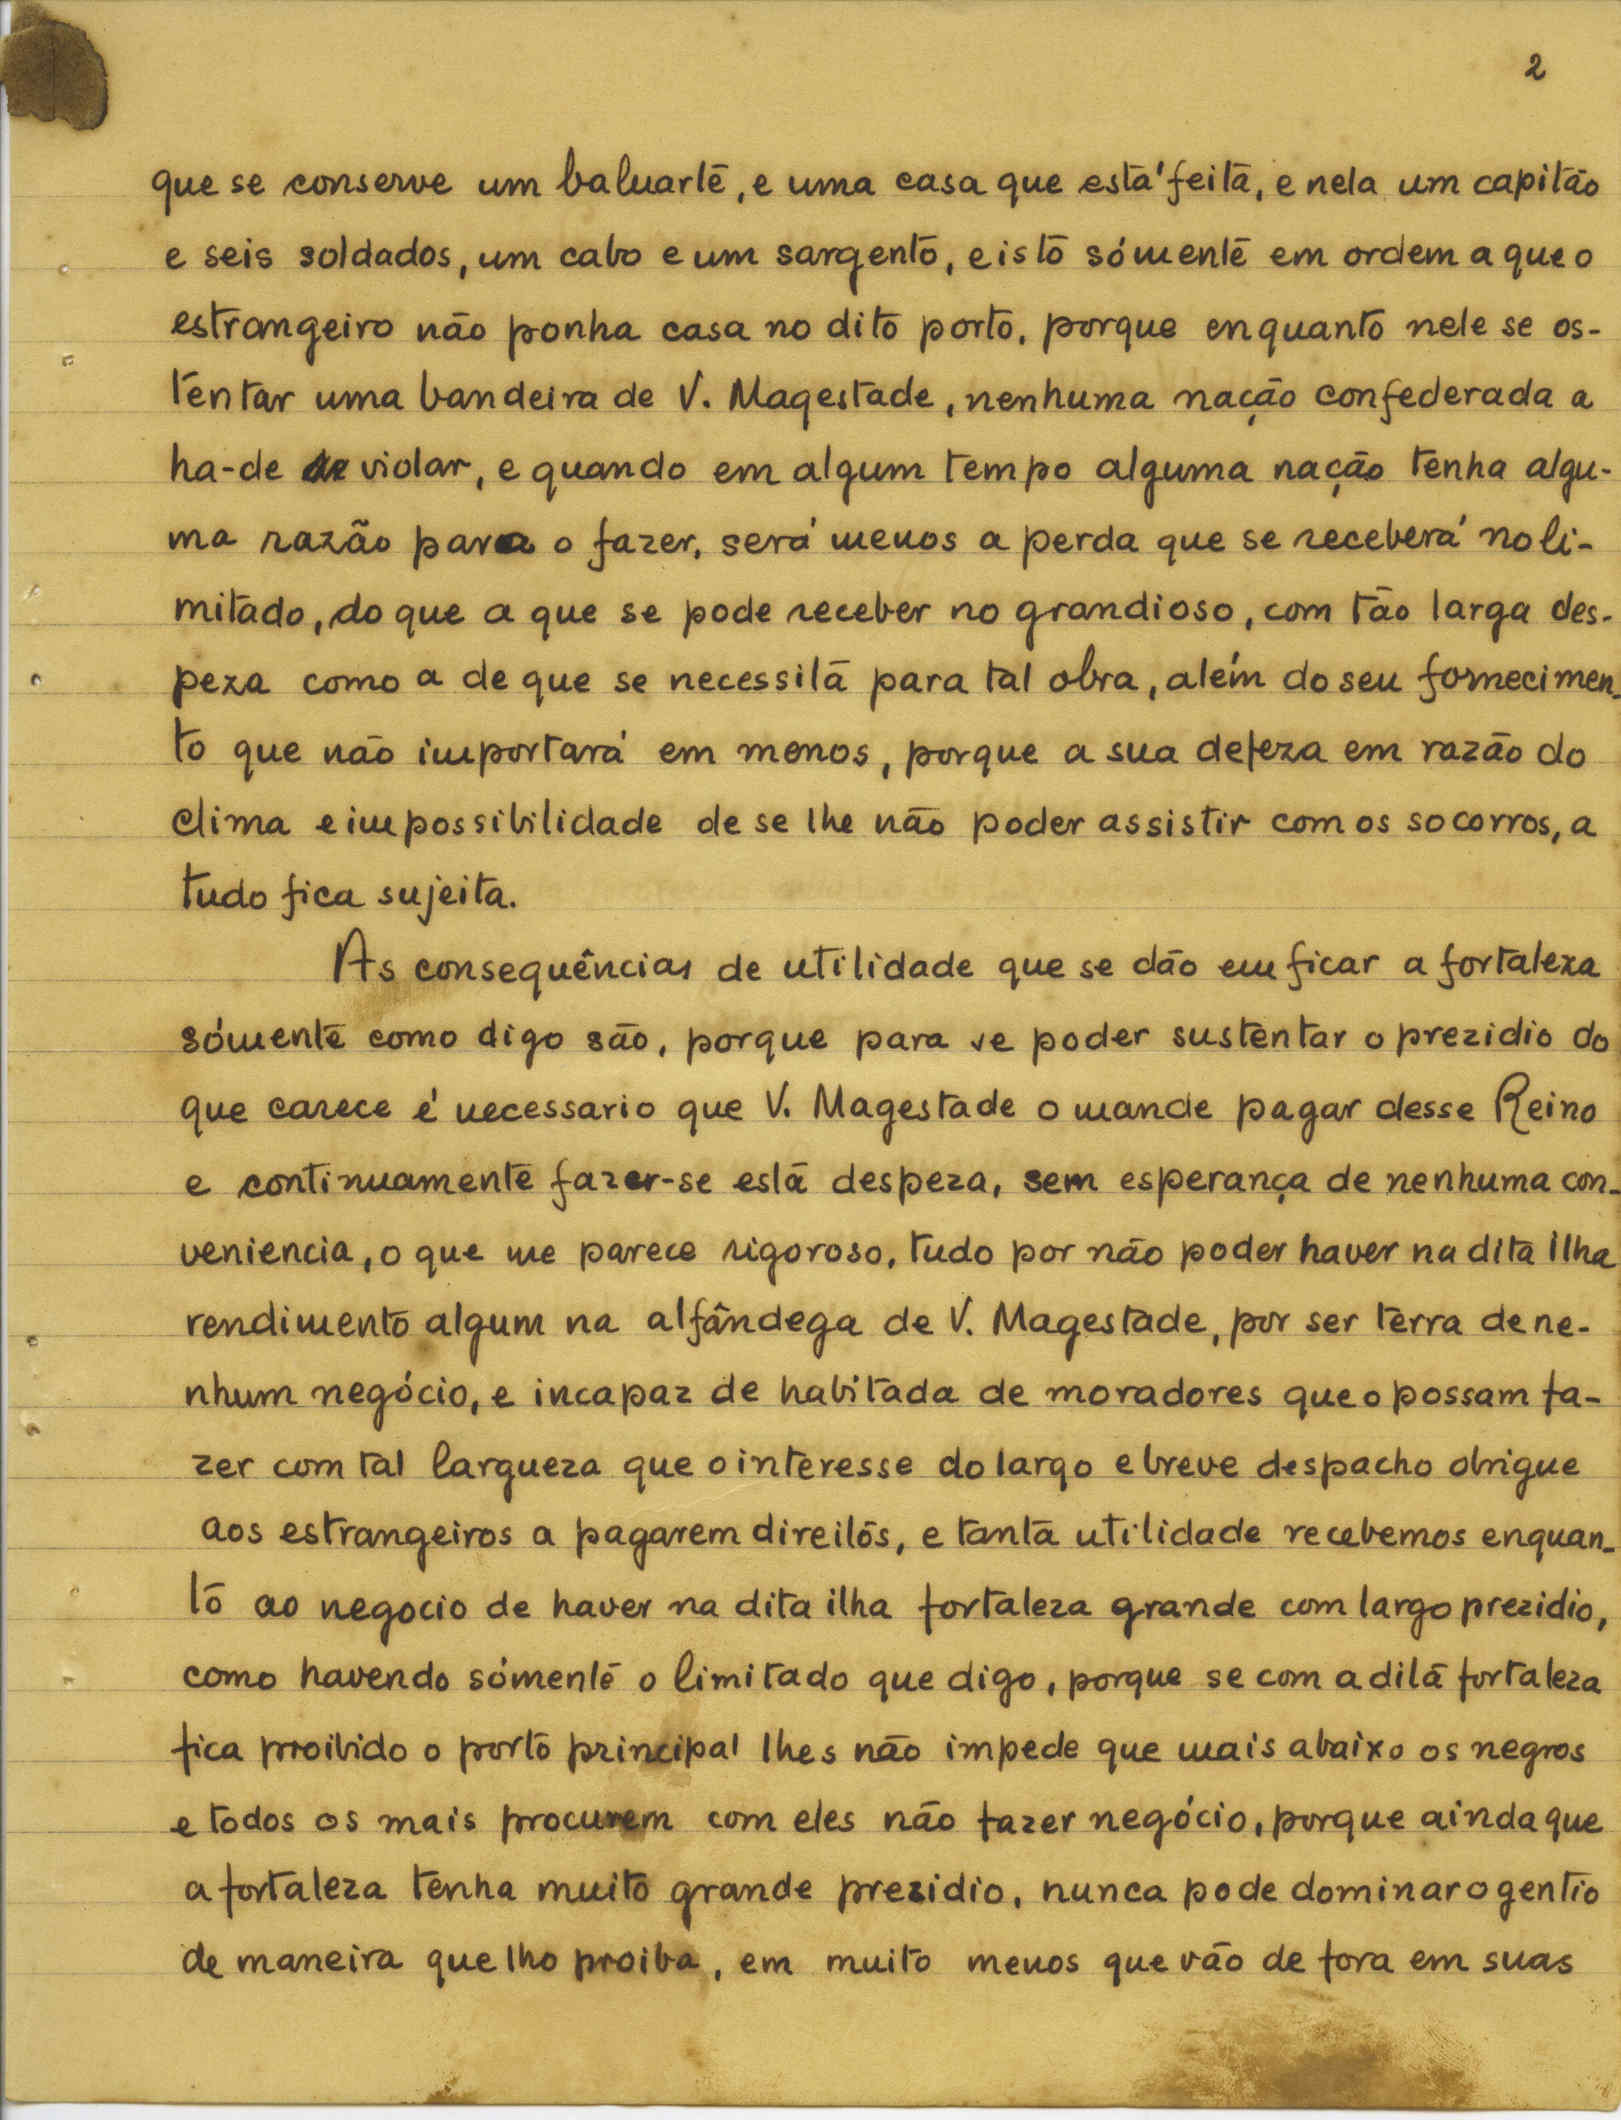 2
que se conserve um baluarte, e uma casa que está feita, e nela um capitão
e seis soldados, um cabo e um sargento, e isto sómente em ordem a que o
estrangeiro não ponha casa no dito porto, porque enquanto nele se os-
tentar uma bandeira de V. Magestade, nenhuma nação confederada a
ha-de violar, e quando em algum tempo alguma nação tenha algu-
ma razão para o fazer, será menos a perda que se receberá no li-
mitado, do que a que se pode receber no grandioso, com tão larga des-
peza como a de que se necessita para tal obra, além do seu fornecimen-
to que não importará em menos, porque a sua defeza em razão do
clima e impossibilidade de se lhe não poder assistir com os socorros, a
tudo fica sujeita.
As consequências de utilidade que se dão em ficar a fortaleza
sómente como digo são, porque para se poder sustentar o prezidio do
que carece é necessario que V. Magestade o mande pagar desse Reino
e continuamente fazer-se esta despeza, sem esperança de nenhuma con-
veniencia, o que me parece rigoroso, tudo por não poder haver na dita ilha
rendimento algum na alfândega de V. Magestade, por ser terra de ne-
nhum negócio, e incapaz de habitada de moradores que o possam fa-
zer com tal largueza que o interesse do largo e breve despacho obrigue
aos estrangeiros a pagarem direitos, e tanta utilidade recebemos enquan-
to ao negocio de haver na dita ilha fortaleza grande com largo prezidio,
como havendo sómente o limitado que digo, porque se com a dita fortaleza
fica proibido o porto principal lhes não impede que mais abaixo os negros
e todos os mais procurem com eles não fazer negócio, porque ainda que
a fortaleza tenha muito grande prezidio, nunca pode dominar o gentio
de maneira que lho proiba, em muito menos que vão de fora em suas